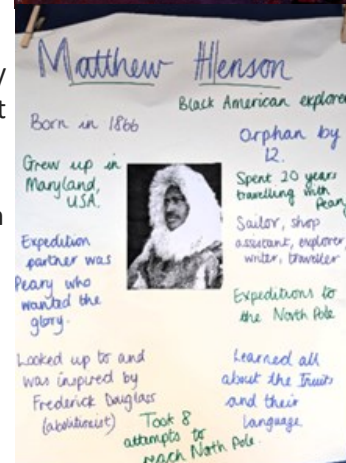 Matthew Henson
Black American explorer
Born in 1866
Orphan by
12.
Grew up in
Maryland,
USA.
Spent 20 years
travelling with
Peary
Sailor, shop
assistant, explorer,
writer, traveller
Expedition
partner was
Peary who
wanted the
glory.
Expeditions to
the North Pole
Looked up to and
was inspired by
Frederick Douglass
(abolitionist)
Learned all
about the Inuits
and their
language
Took 8
attempts to
reach North Pole.